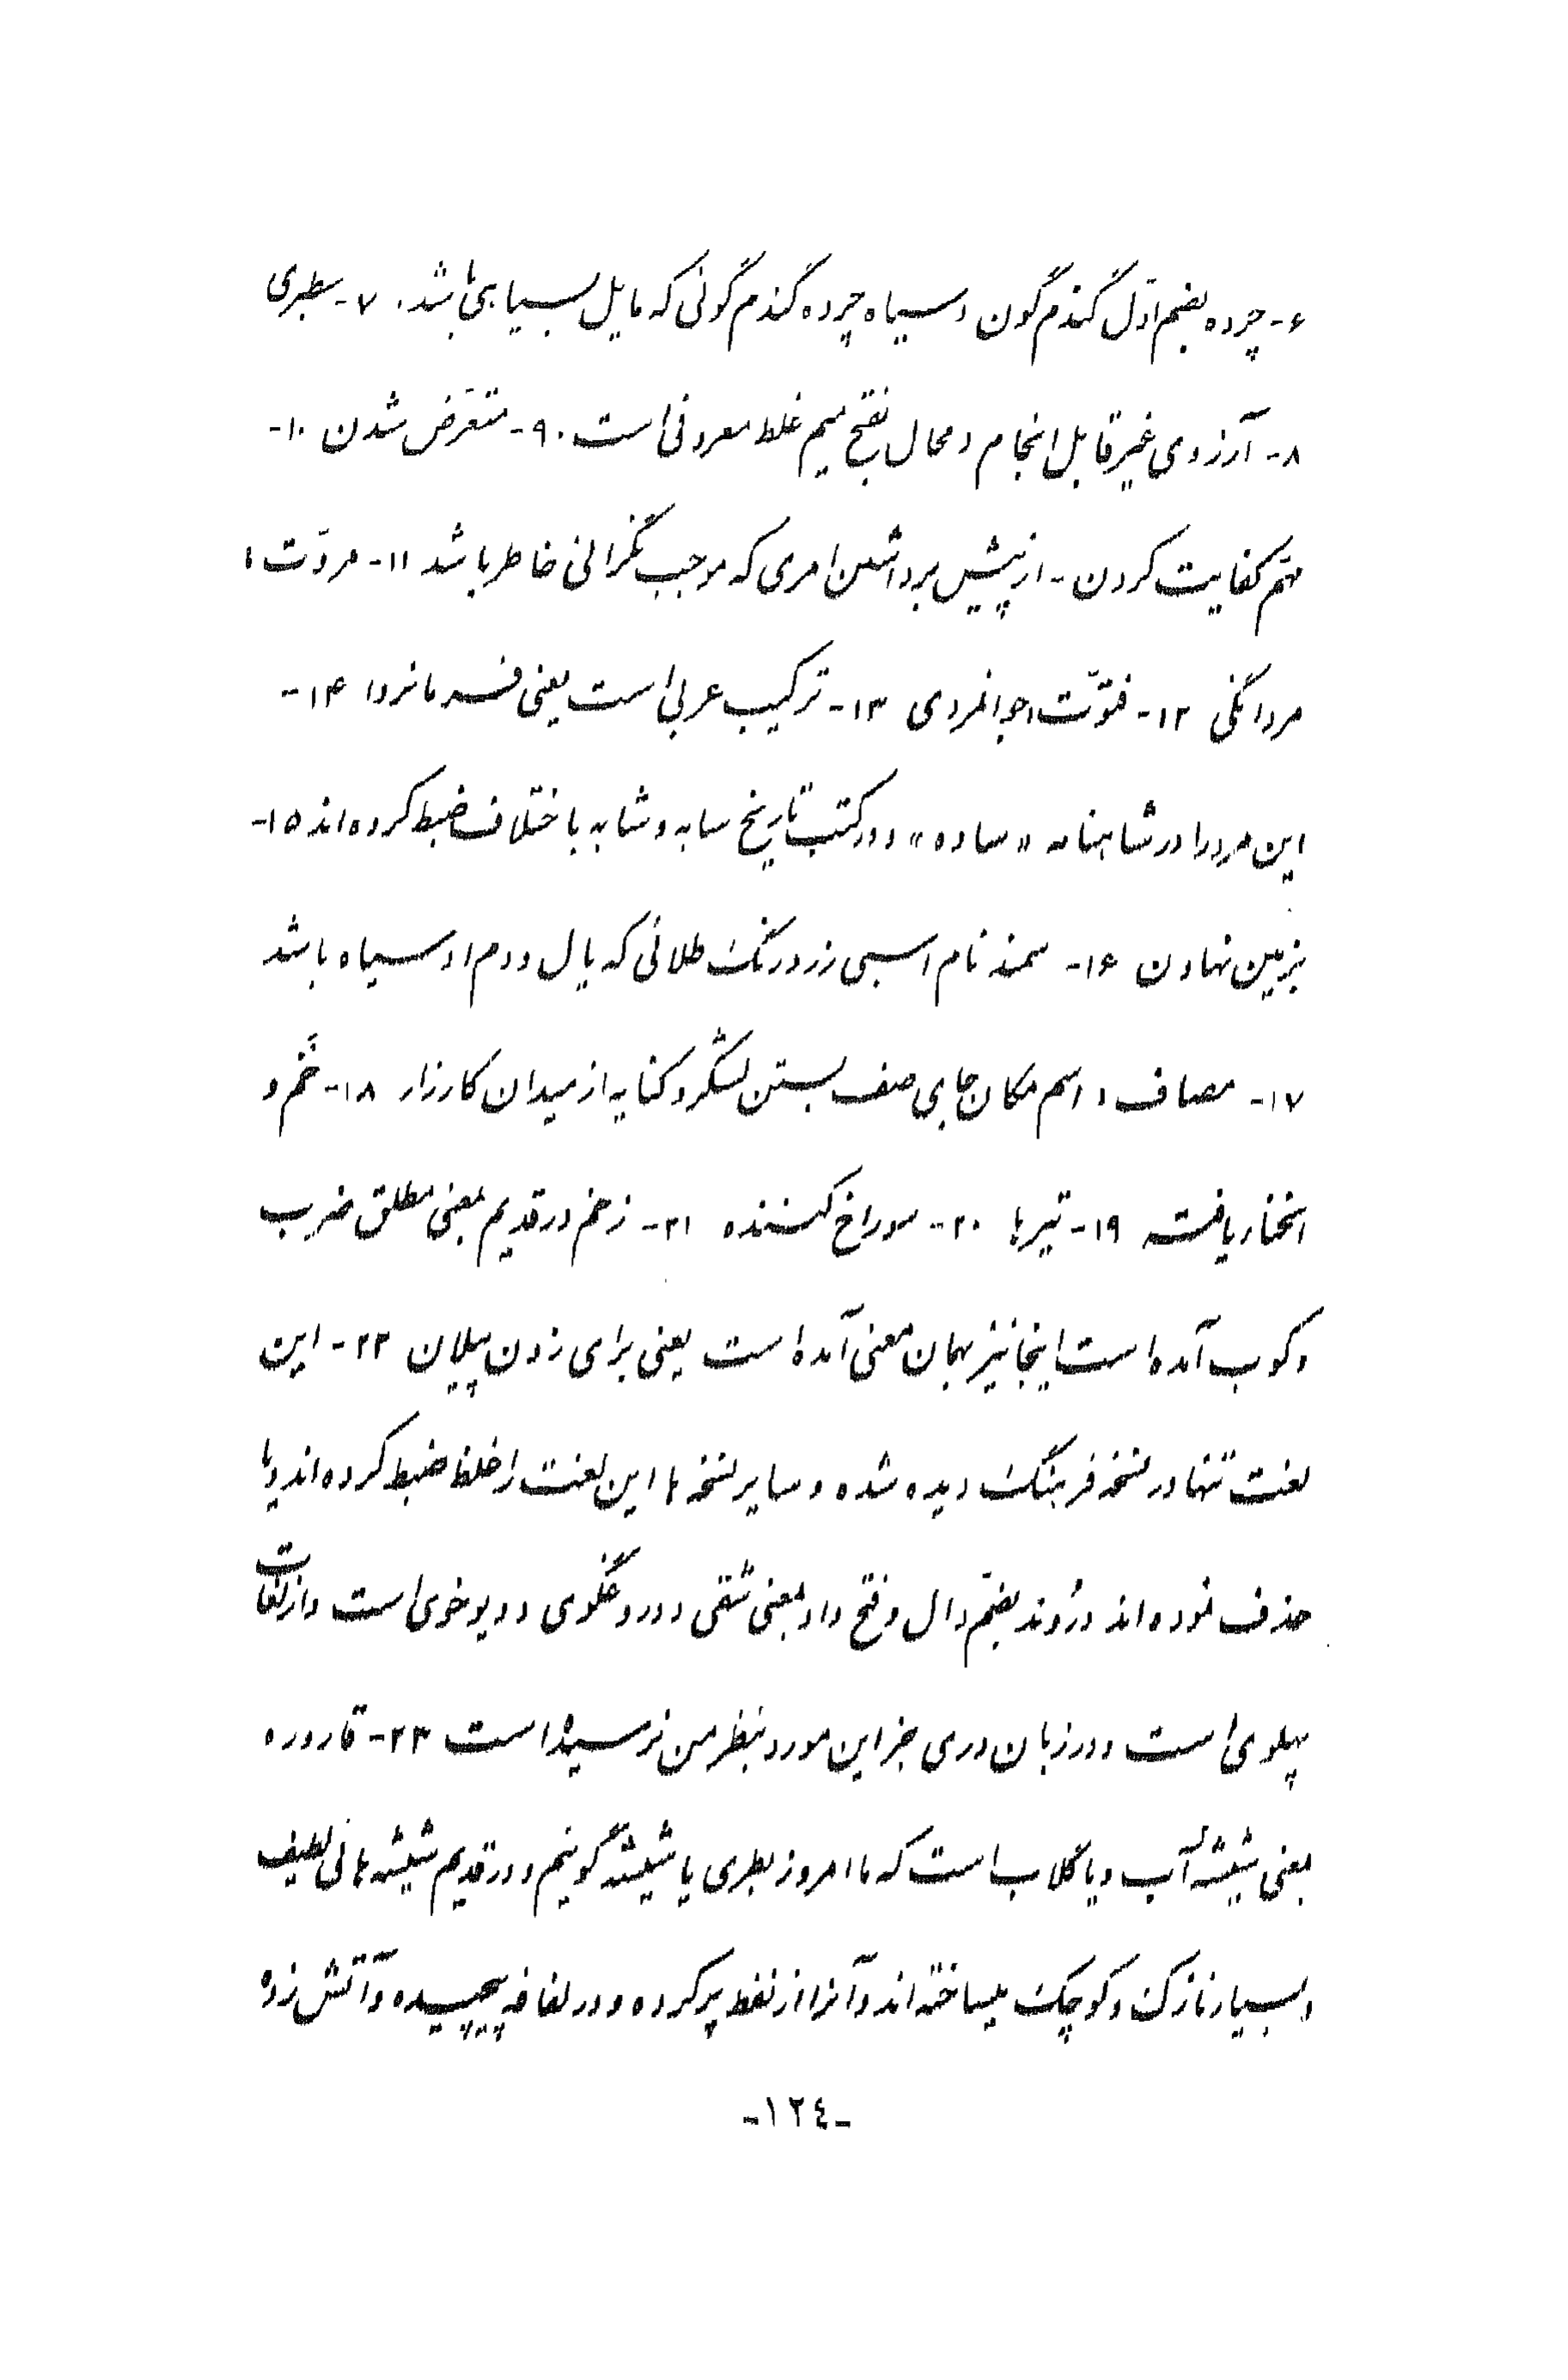 ۶- چرده بضم اوّل گندم گون و سیاه چرده گندم گونی که مایل بسیاهی باشد. ۷- سطبری
۸- آرزوی غیرقابل انجام و محال بفتح میم غلط معروفی است. ۹- متعرّض شدن ۱۰-
مهّم کفایت کردن - از پیش برداشتن امری که موجب نگرانی خاطر باشد ۱۱- مروّت،
مردانگی ۱۲- فتوّت، جوانمردی ۱۳- ترکیب عربی است یعنی فرمانروا ۱۴-
این مرد را در شاهنامه «ساوه» و در کتب تاریخ سابه و شابه باختلاف ضبط کرده‌اند ۱۵-
بزمین نهادن ۱۶- سمند نام اسبی زرد رنگ طلائی که یال و دم او سیاه باشد
۱۷- مصاف، اسم مکان جای صف بستن لشگر و کنایه از میدان کارزار ۱۸- خَم و
انحنا ریافت ۱۹- تیرها ۲۰- سوراخ کننده ۲۱- زخم در قدیم بمعنی مطلق ضرب
و کوب آمده است اینجا نیز بهمان معنی آمده است یعنی برای زدن پیلان ۲۲- این
لغت تنها در نسخه فرهنگ دیده شده و سایر نسخه‌ها این لغت را غلط ضبط کرده‌اند و یا
حذف نموده‌اند دُروند بضّم دال و فتح واو بمعنی شقی و دروغگوی و دیو خوی است و از لغات
پهلوی است و در زبان دری جز این مورد بنظر من نرسیده است ۲۳- قاروره
بمعنی شیشهٔ آب و یا گلاب است که ما امروز بطری یا شیشه گوئیم و در قدیم شیشه‌هائی لطیف
و بسیار نازک و کوچک میساخته‌اند و آنرا از نفط پر کرده و در لفافه پیچیده و آتش زده
-١٢٤-